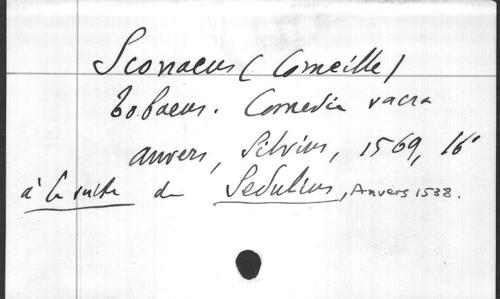 Sconaeus (Corneille)
Tobaeus. Comedia sacra
anvers, Silvius, 1569, 16°
à la suite de Sedulius, Anvers 1538.